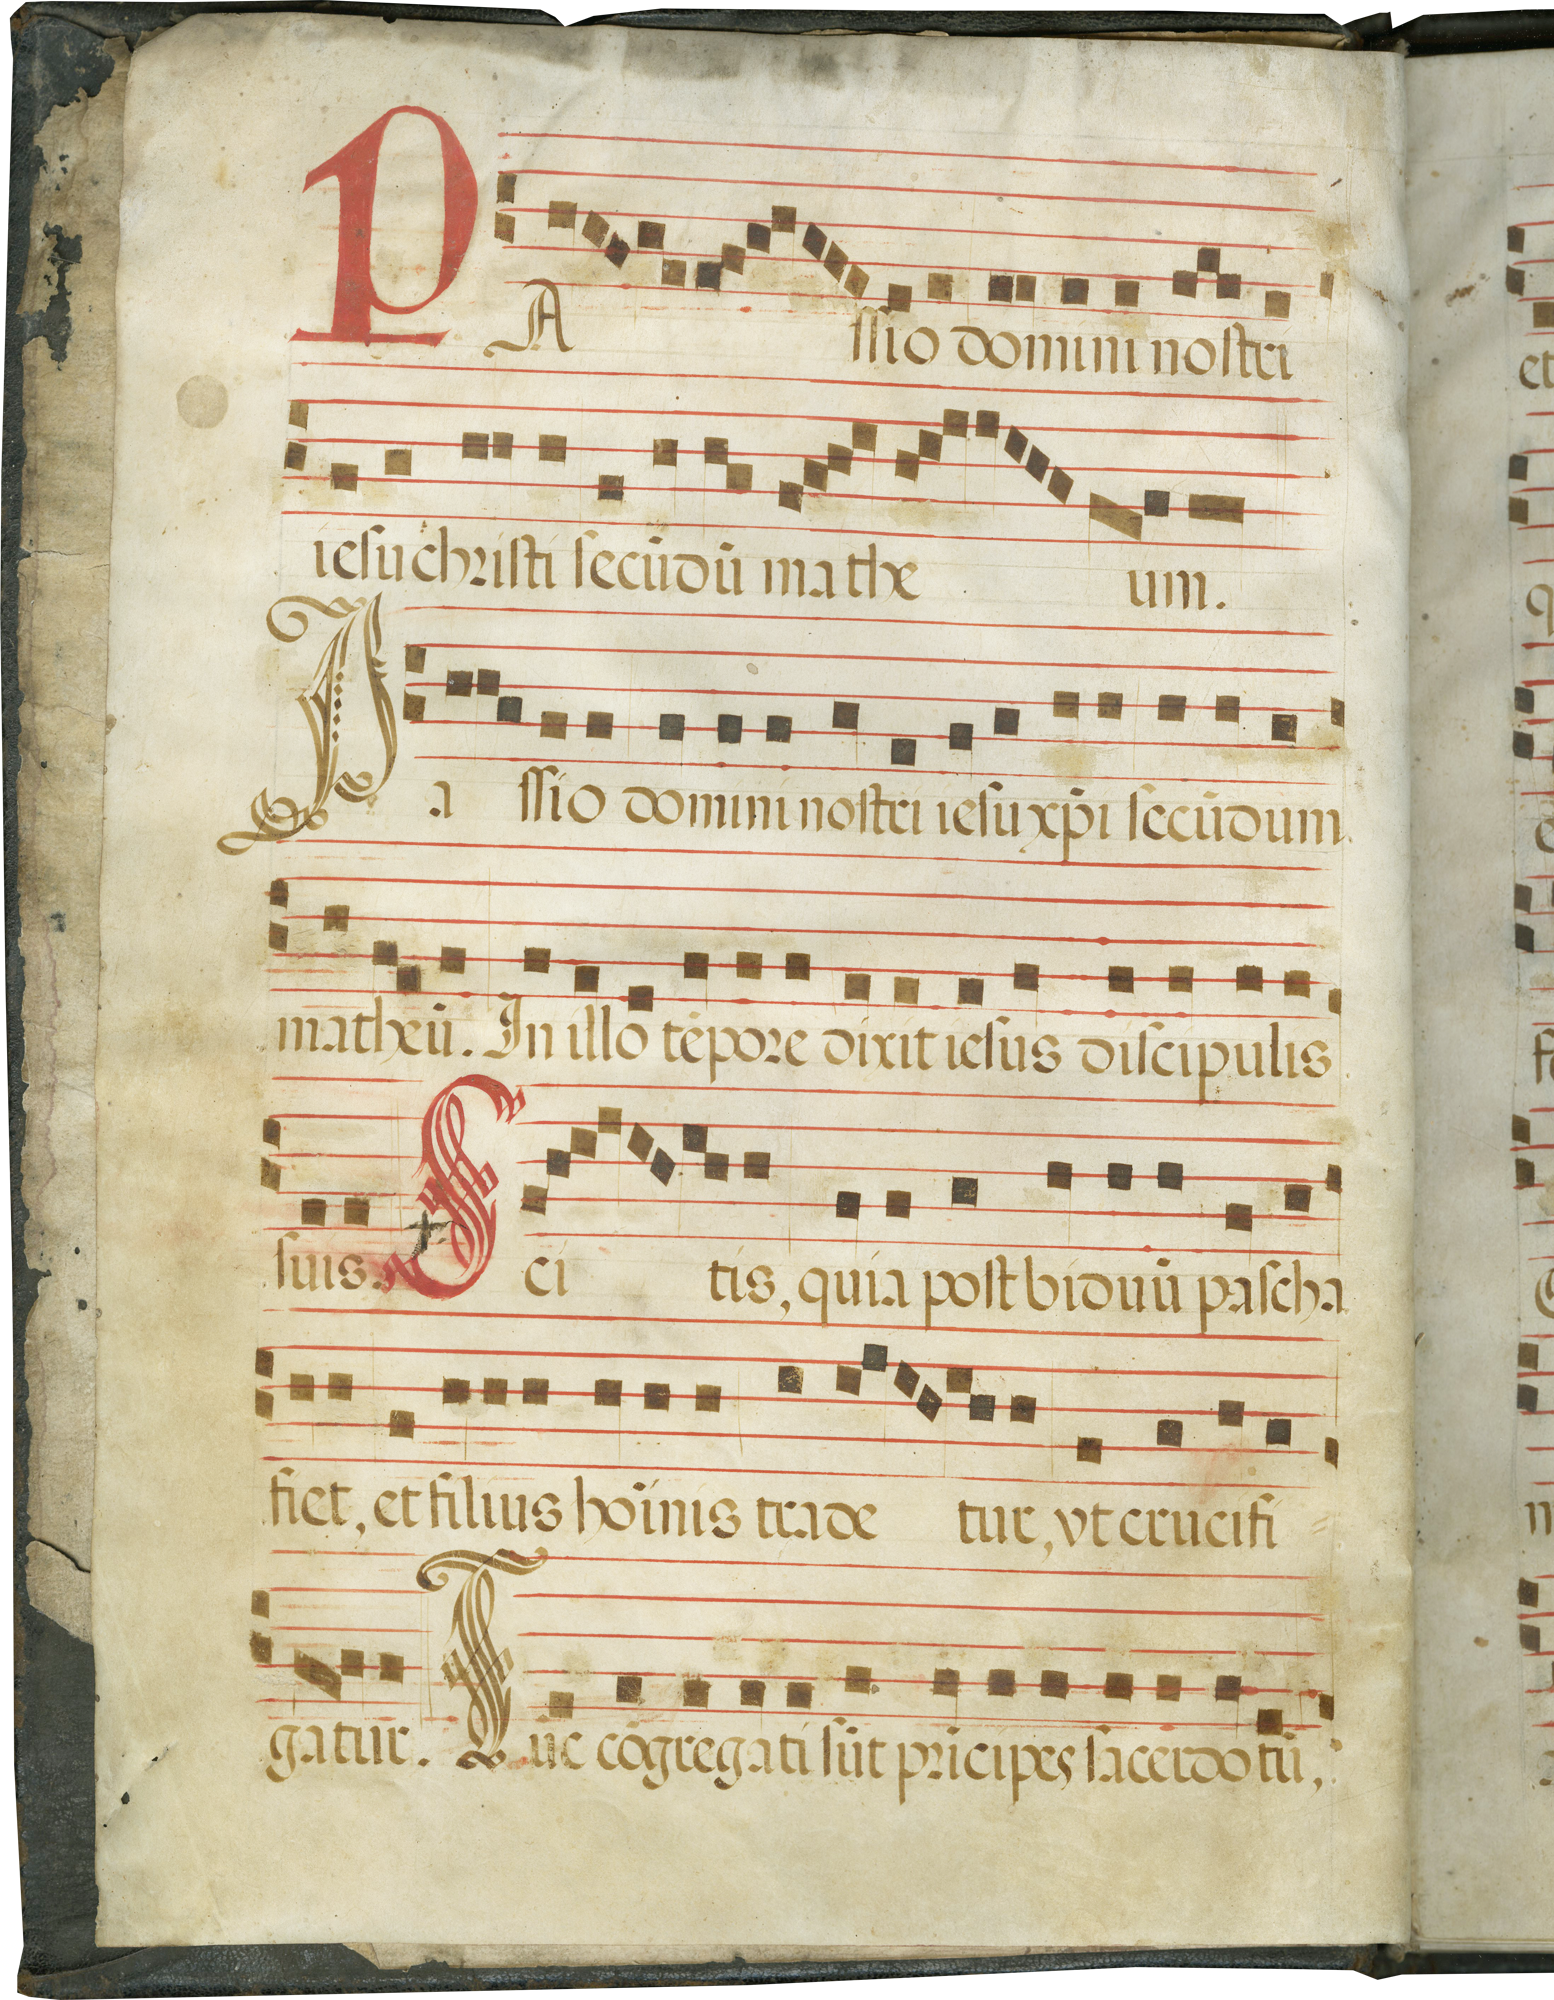 PAssio domini nostri
iesu christi secūdū matheum.
Passio domini nostri iesu xp̄i secūdum
matheū. In illo tēpore dixit iesus discipulis
suis. Scitis, quia post biduū pascha
fiet, et filius hoīnis tradetur, vt crucifi
gatur. Tūc cōgregati sūt prīcipes sacerdotū,